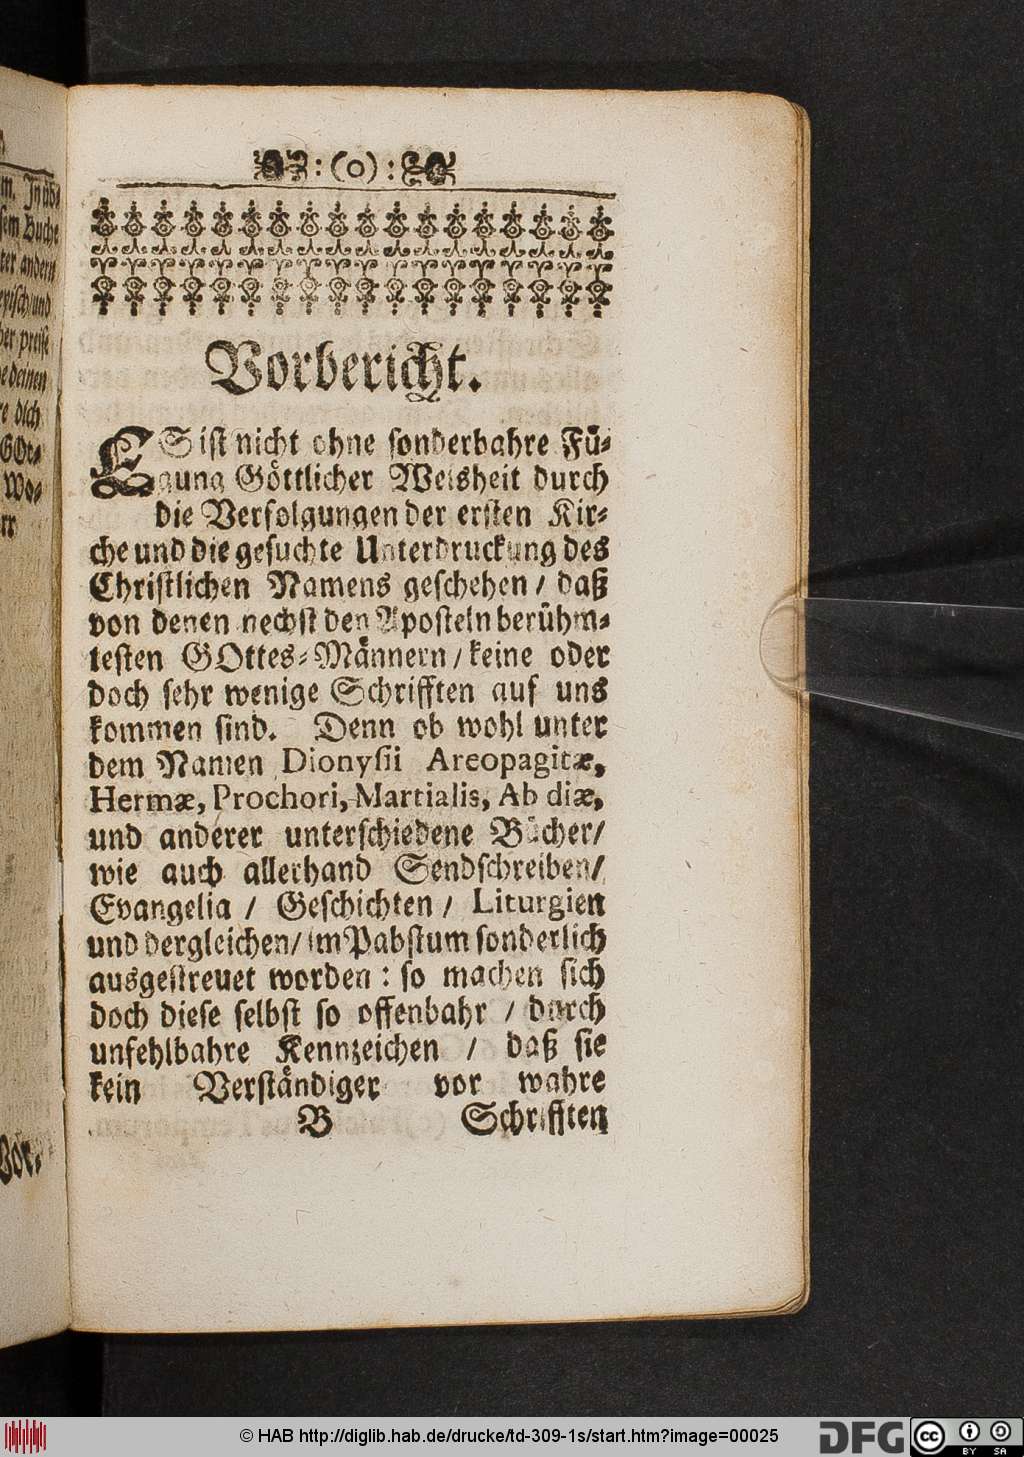 :(o):
Vorbericht.
ES ist nicht ohne sonderbahre Fü-
gung Göttlicher Weisheit durch
die Verfolgungen der ersten Kir-
che und die gesuchte Unterdruckung des
Christlichen Namens geschehen / daß
von denen nechst den Aposteln berühm-
testen GOttes-Männern / keine oder
doch sehr wenige Schrifften auf uns
kommen sind. Denn ob wohl unter
dem Namen Dionysii Areopagitæ,
Hermæ, Prochori, Martialis, Ab diæ,
und anderer unterschiedene Bücher/
wie auch allerhand Sendschreiben/
Evangelia / Geschichten / Liturgien
und dergleichen/ im Pabstum sonderlich
ausgestreuet worden: so machen sich
doch diese selbst so offenbahr / durch
unfehlbahre Kennzeichen / daß sie
kein Verständiger vor wahre
B Schrifften
m. In üb-
sem Buche
ter andern
und
her preise
deinen
dich
GOt-
Wo-
rr
Vor-
© HAB http://diglib.hab.de/drucke/td-309-1s/start.htm?image=00025
DFG
cc BY SA